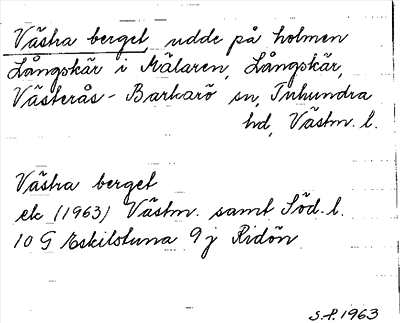 Västra berget, udde på holmen
Långskär i Mälaren, Långskär,
Västerås-Barkarö sn, Tuhundra
hd, Västm. l.
Västra berget
ek (1963) Västm. samt Söd. l.
10 G Eskilstuna 9 j Ridön
S.P. 1963